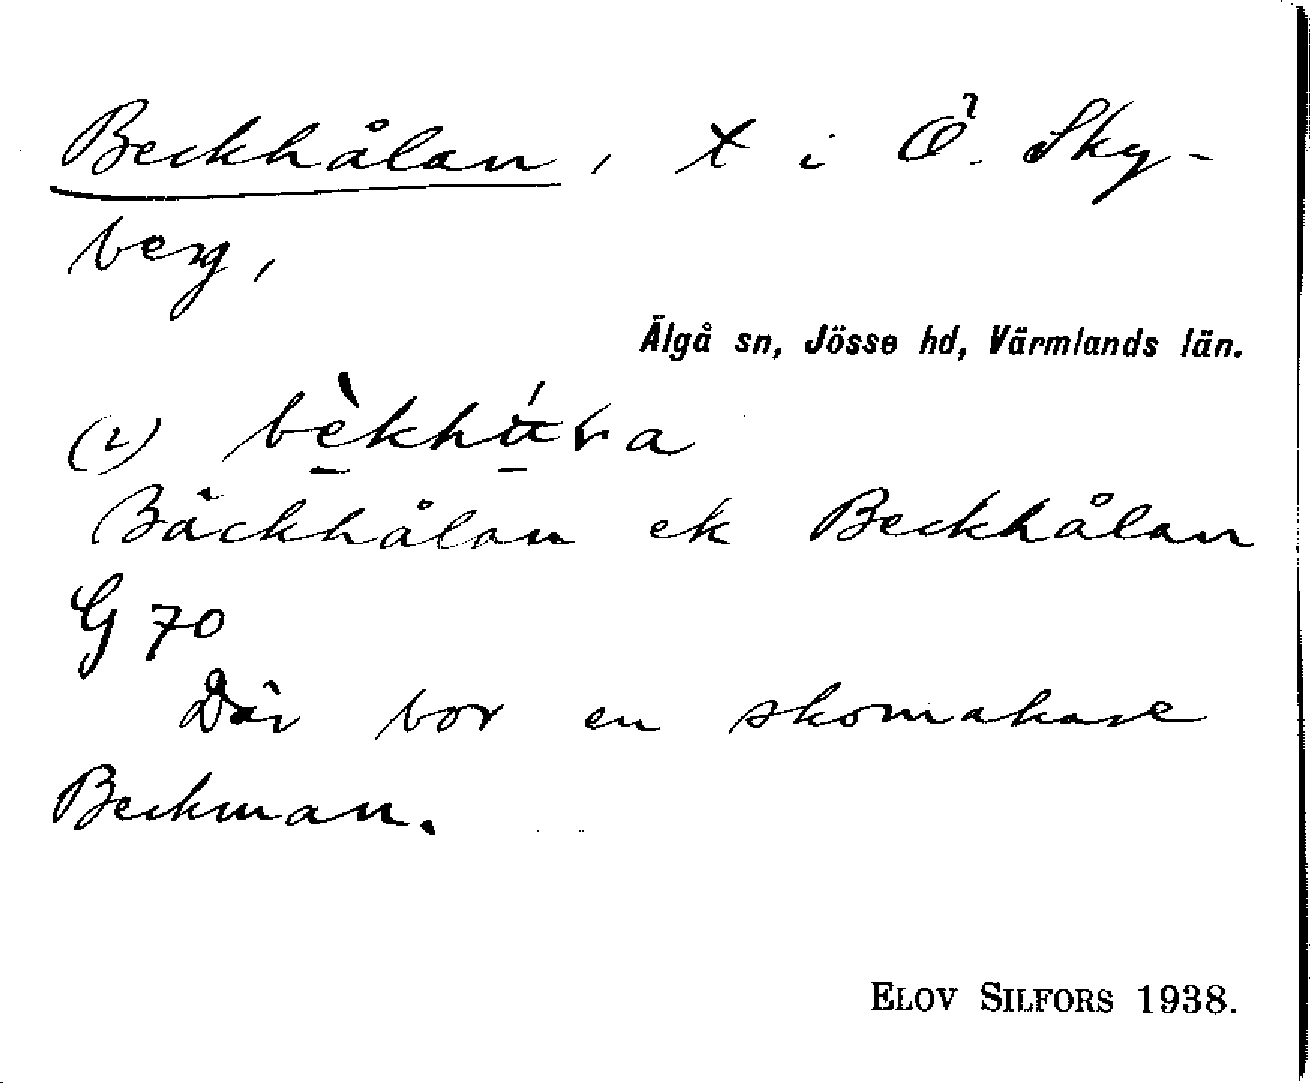 Beckhålan, x i Ö. Sky-
berg,
Älgå sn, Jösse hd, Värmlands län.
(2)
Bäckhålan ek Beckhålan
G 70
Där bor en skomakare
Beckman.
ELOV SILFORS 1938.